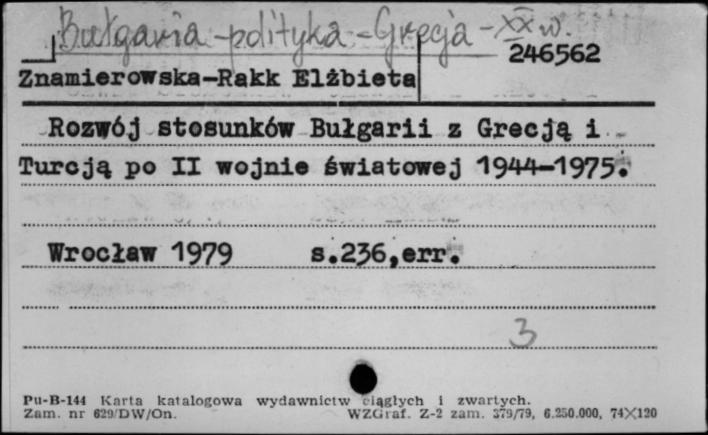 Bułgaria-polityka-Grecja-XX w.
246562
Znamierowska-Rakk Elżbieta
Rozwój stosunków Bułgarii z Grecją i
Turcją po II wojnie światowej 1944-1975.
Wrocław 1979 s.236,err.
3
Pu-B-144 Karta katalogowa wydawnictw ciągłych i zwartych.
Zam. nr 629/DW/On. WZGraf. Z-2 zam. 379/79, 6.250.000, 74×120